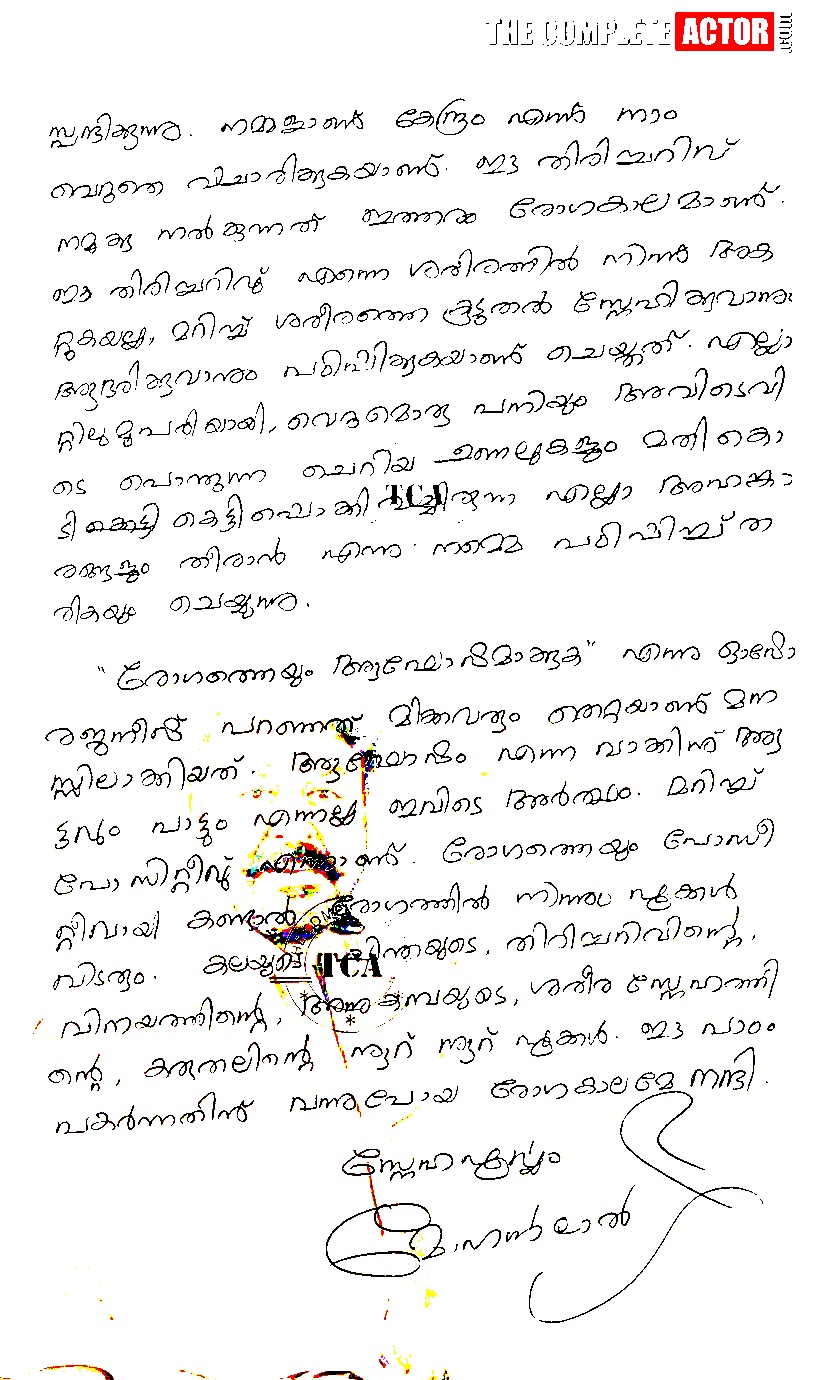 THE COMPLETE ACTOR
സ്പന്ദിക്കുന്നു. നമ്മളാണ് കേന്ദ്രം എന്ന് നാം
വെറുതെ വിചാരിക്കുകയാണ്. ഈ തിരിച്ചറിവ്
നമുക്കു നൽകുന്നത് ഇത്തരം രോഗകാലമാണ്.
ഈ തിരിച്ചറിവ് എന്നെ ശരീരത്തിൽ നിന്ന് അക
റ്റുകയല്ല, മറിച്ച് ശരീരത്തെ കൂടുതൽ സ്നേഹിക്കുവാനും
ആദരിക്കുവാനും പഠിപ്പിക്കുകയാണ് ചെയ്തത്. എല്ലാ
റ്റിലുമുപരിയായി, വെറുമൊരു പനിയും അവിടെവി
ടെ പൊന്തുന്ന ചെറിയ ചുണലുകളും മതി കൊ
ടികെട്ടി കെട്ടിപ്പൊക്കി വച്ചിരുന്ന എല്ലാ അഹങ്കാ
രങ്ങളും തീരാൻ എന്നു നമ്മെ പഠിപ്പിച്ച് ത
രികയും ചെയ്യുന്നു.
"രോഗത്തെയും ആഘോഷമാക്കുക" എന്നു ഓഷോ
രജനീഷ് പറഞ്ഞത് മിക്കവരും തെറ്റയാണ് മന
സ്സിലാക്കിയത്. ആഘോഷം എന്ന വാക്കിന് ആ
ട്ടവും പാട്ടും എന്നല്ല ഇവിടെ അർത്ഥം. മറിച്ച്
പോസിറ്റീവ് എന്നാണ്. രോഗത്തെയും പോസി
റ്റീവായി കണ്ടാൽ രോഗത്തിൽ നിന്നും പൂക്കൾ
വിടരും. കലയുടെ ചിന്തയുടെ, തിരിച്ചറിവിന്റെ,
വിനയത്തിന്റെ, അനുകമ്പയുടെ, ശരീര സ്നേഹത്തി
ന്റെ, കരുതലിന്റെ നൂറ് നൂറ് പൂക്കൾ. ഈ പാഠം
പകർന്നതിന് വന്നുപോയ രോഗകാലമേ നന്ദി.
സ്നേഹപൂർവ്വം
മോഹൻലാൽ
TCA
TCA